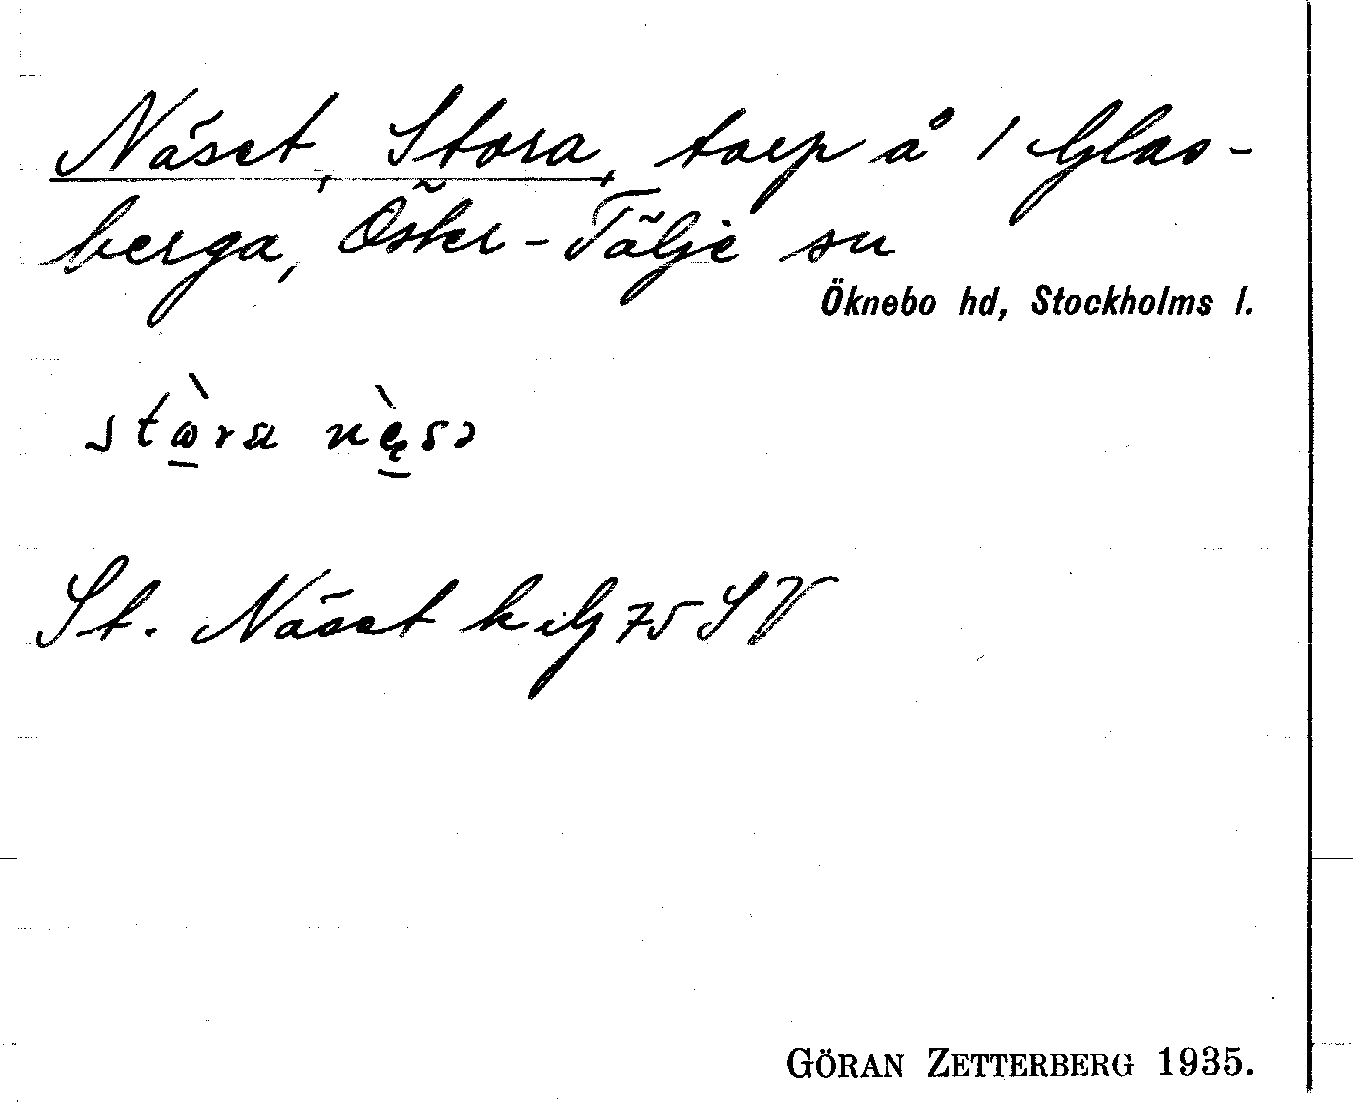 Näset, Stora, torp å 1 Glas-
berga, Öster-Tälje sn
Öknebo hd, Stockholms l.
stɷ̀ra nę̀sə
St. Näset k 75 SV
GÖRAN ZETTERBERG 1935.